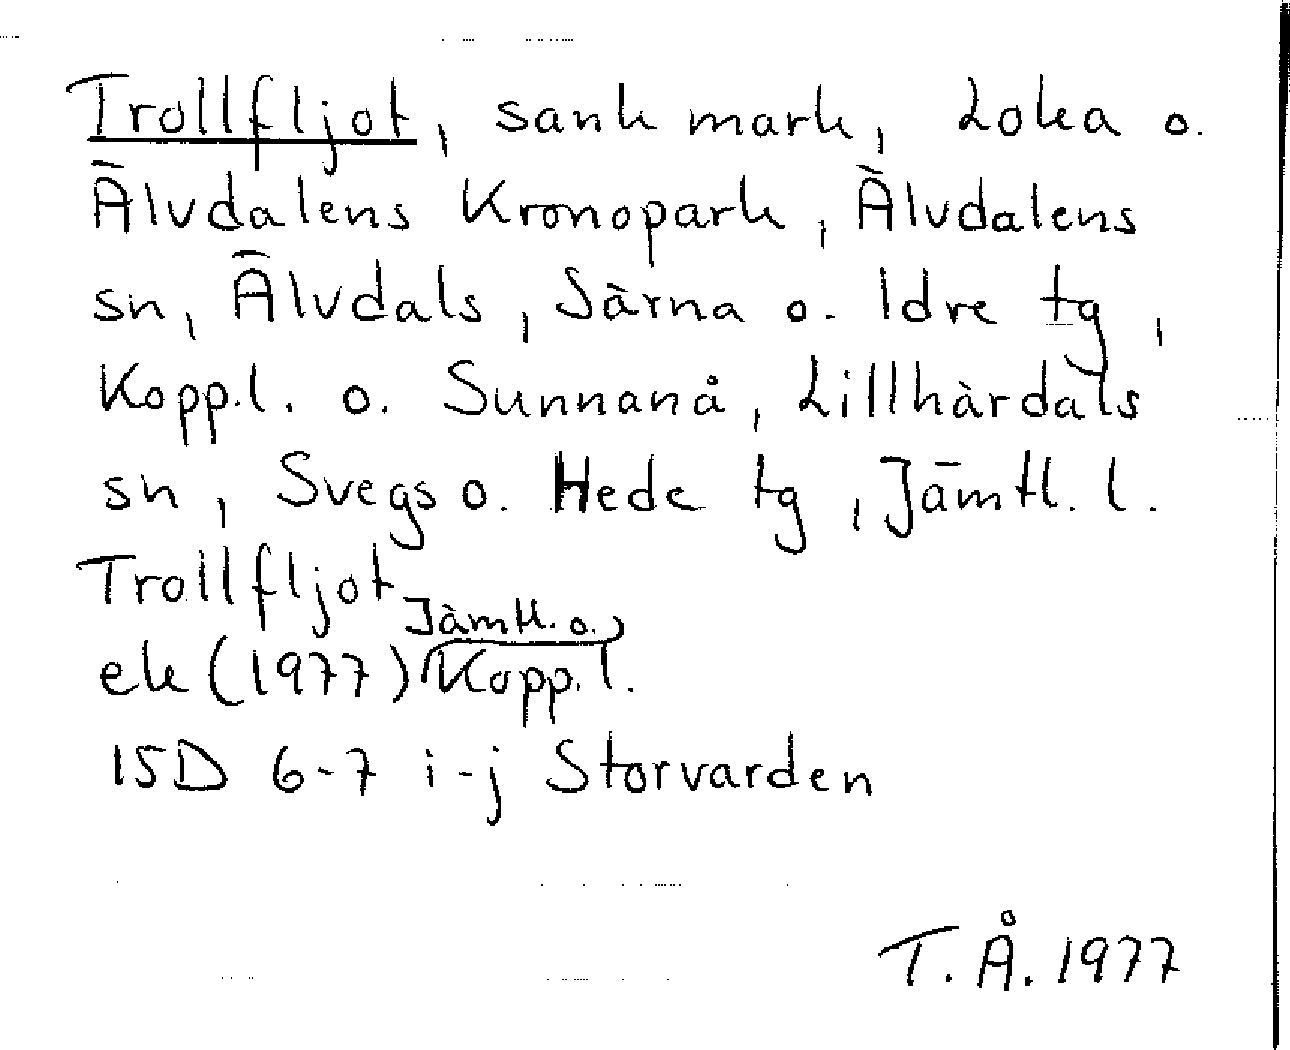 Trollfljot, sank mark, Loka o.
Älvdalens Kronopark, Älvdalens
sn, Älvdals, Särna o. Idre tg,
Kopp.l. o. Sunnanå, Lillhärdals
sn, Svegs o. Hede tg, Jämtl. l.
Trollfljot
Jämtl. o.
ek (1977) Kopp. l.
15D 6-7 i-j Storvarden
T. Å. 1977